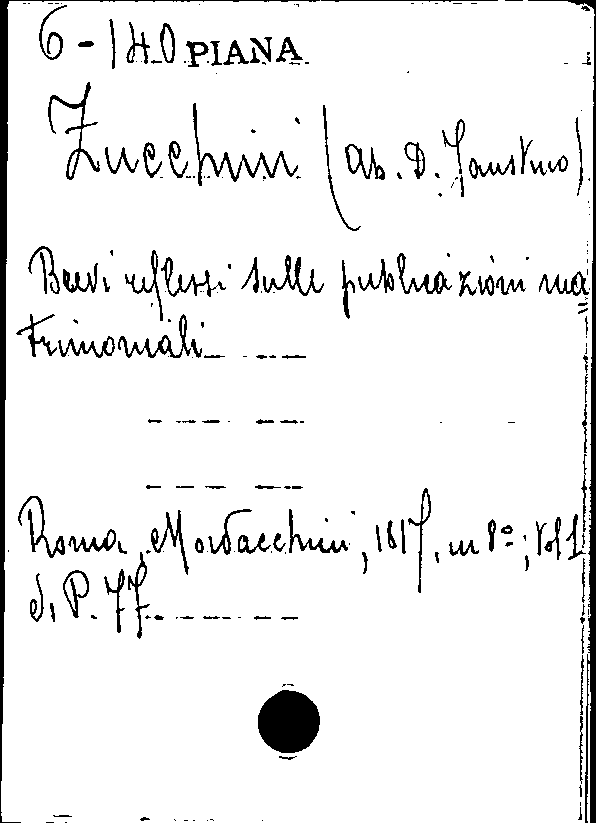 6-140 PIANA
Zucchini (Ab. D. Faustino)
Brevi riflessi sulle pubblicazioni ma
trimoniali
Roma, Mordacchini, 1817, in 8º; Vol 1
di P. 77.